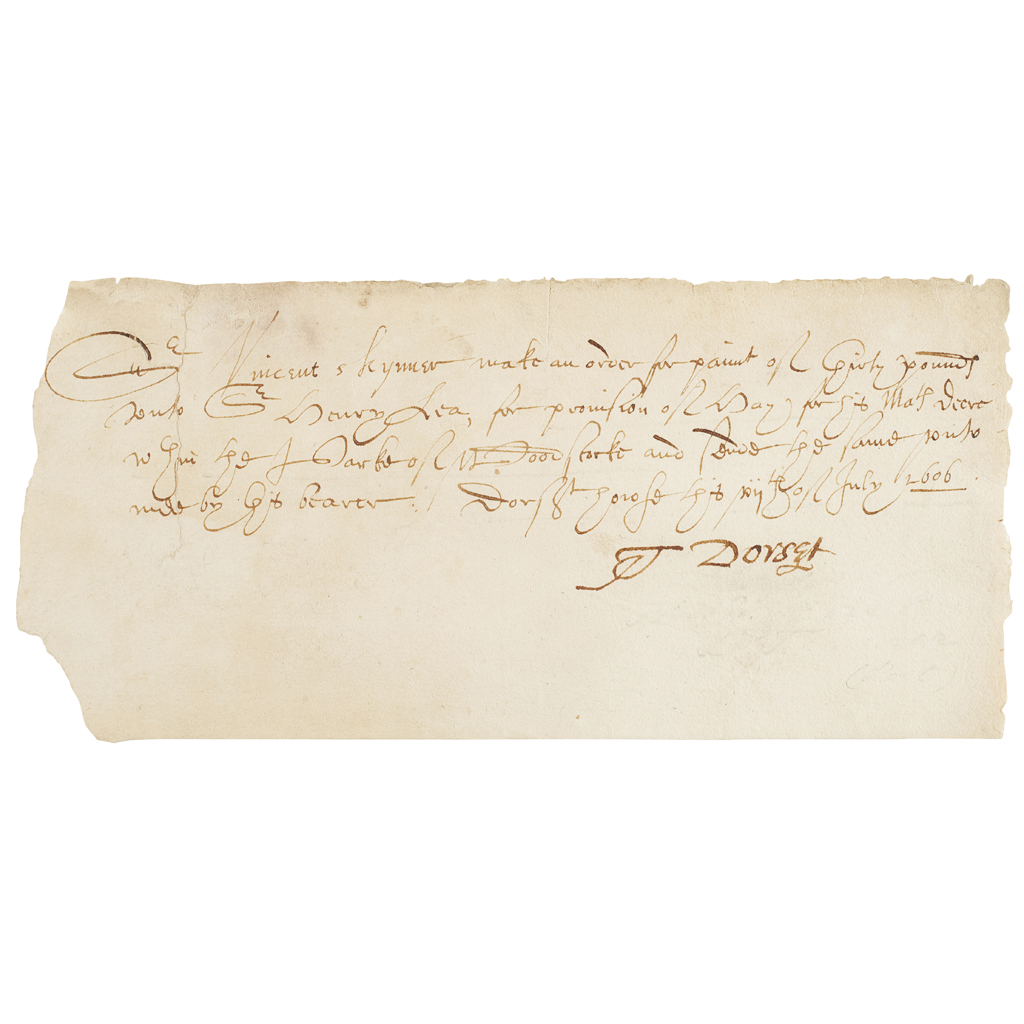 Sr Vincent Skynner make an order for paimt of thirty pounds
vnto Sr Henry Lea, for provision of Hay, for his Mats deere
wthin the Parke of Woodstocke and sende the same vnto
mee by this bearer. Dorsett howse this vijth of July 1606.
T Dorset